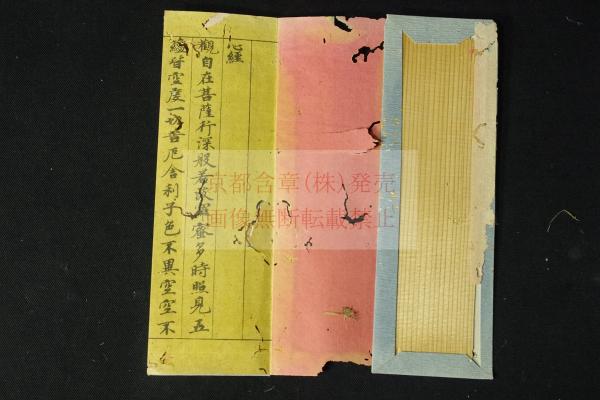 心經
觀自在菩薩行深般若波羅蜜多時照見五
蘊皆空度一切苦厄舍利子色不異空空不
京都含章(株)発売
画像無断転載禁止